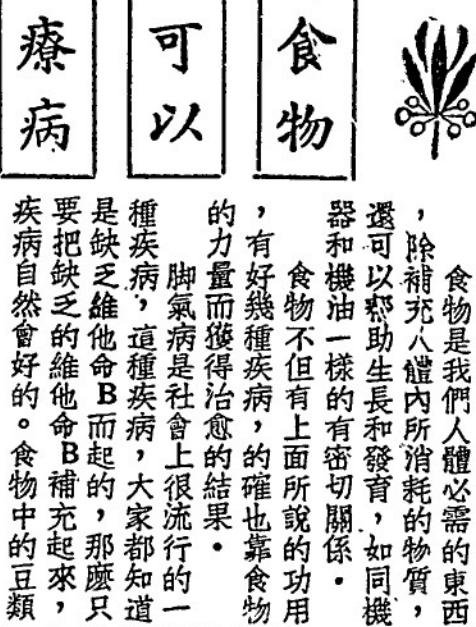 食物
可以
療病
食物是我們人體必需的東西
，除補充人體內所消耗的物質，
還可以幫助生長和發育，如同機
器和機油一樣的有密切關係．
食物不但有上面所說的功用
，有好幾種疾病，的確也靠食物
的力量而獲得治愈的結果．
脚氣病是社會上很流行的一
種疾病，這種疾病，大家都知道
是缺乏維他命B而起的，那麼只
要把缺乏的維他命B補充起來，
疾病自然會好的。食物中的豆類